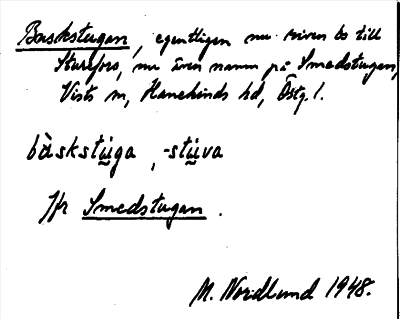 Baskstugan, egentligen nu riven bs till
Sturefors, nu även namn på Smedstugan,
Vists sn, Hanekinds hd, Östg. l.
båskstu̱ga, -stu̱va
Jfr Smedstugan.
M. Nordlund 1948.